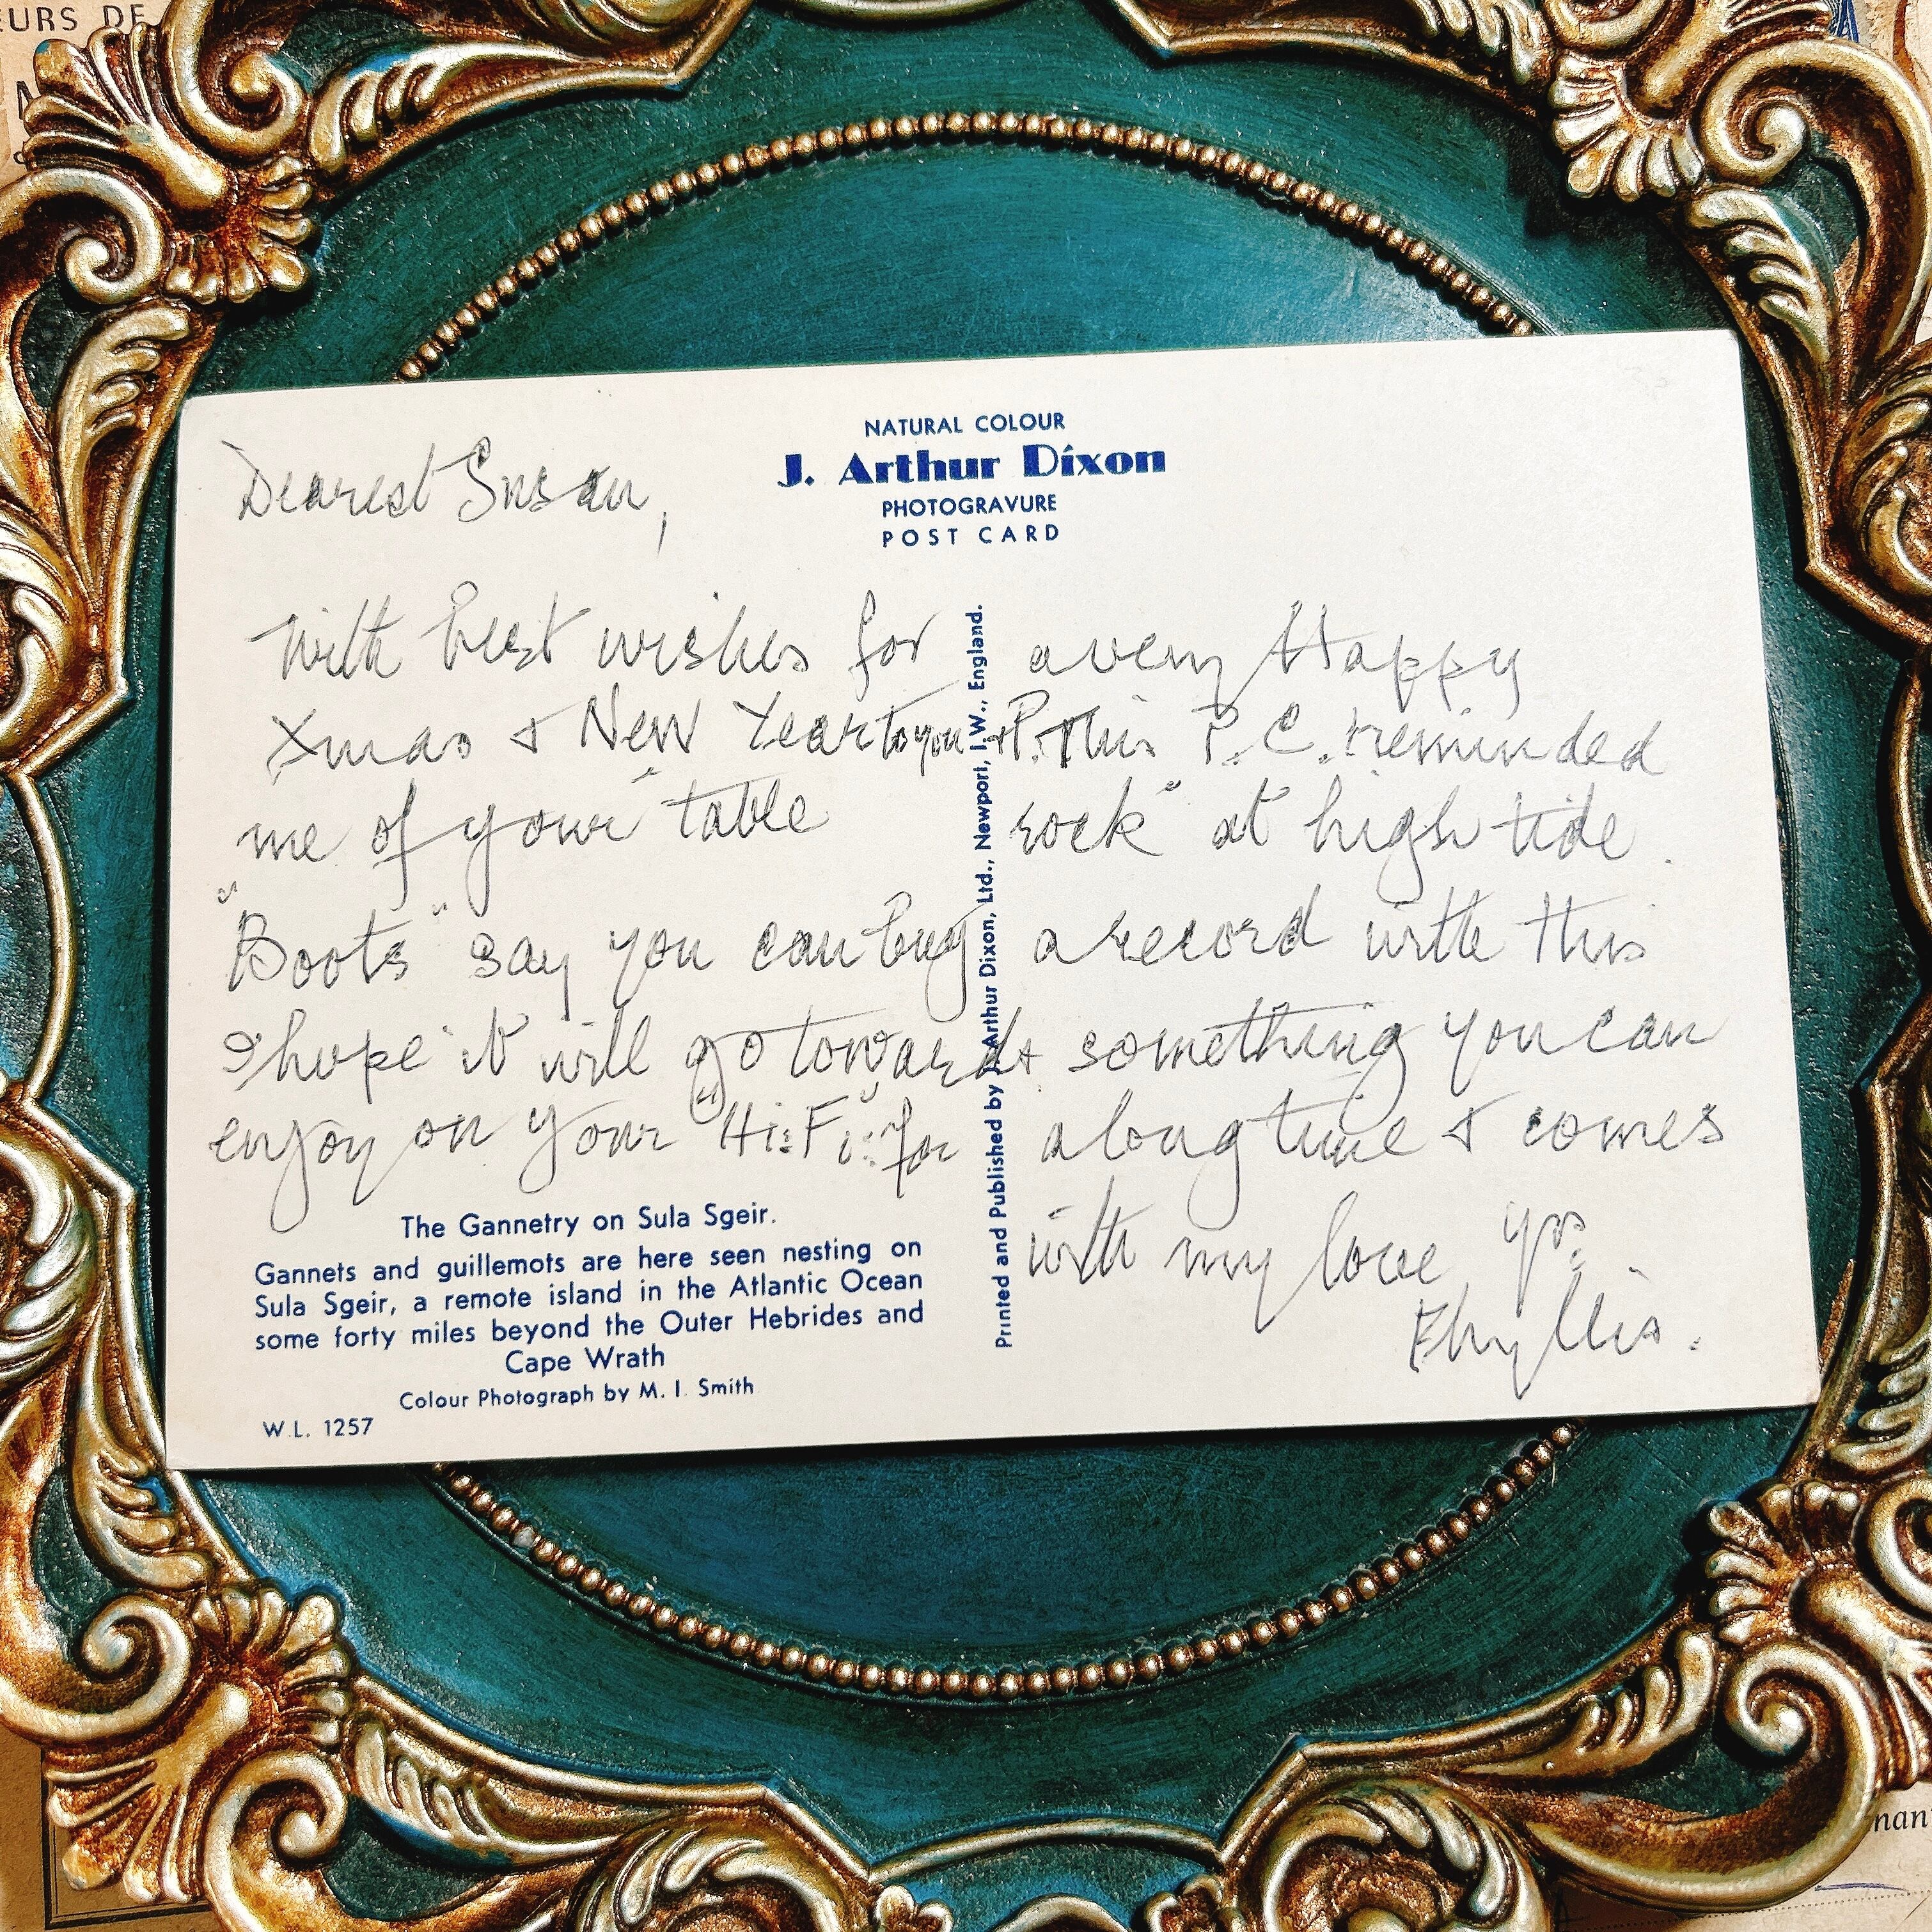 EURS DE
NATURAL COLOUR
J. Arthur Dixon
PHOTOGRAVURE
POST CARD
Dearest Susan,
With best wishes for a very Happy
Xmas & New Year to you + P. This P.C. reminded
me of your "table rock" at high tide.
"Boots" say you can buy a record with this
I hope it will go towards something you can
enjoy on your "Hi:Fi:" for a long time & comes
with my love, Yrs.
Phyllis.
The Gannetry on Sula Sgeir.
Gannets and guillemots are here seen nesting on
Sula Sgeir, a remote island in the Atlantic Ocean
some forty miles beyond the Outer Hebrides and
Cape Wrath
Colour Photograph by M. I. Smith
W.L. 1257
Printed and Published by J. Arthur Dixon, Ltd., Newport, I.W., England.
nan